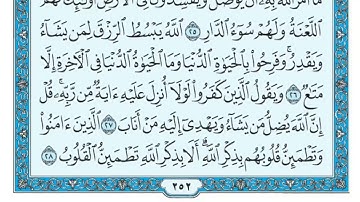 مَآ أَمَرَ ٱللَّهُ بِهِۦٓ أَن يُوصَلَ وَيُفْسِدُونَ فِى ٱلْأَرْضِ أُو۟لَٰٓئِكَ لَهُمُ
ٱللَّعْنَةُ وَلَهُمْ سُوٓءُ ٱلدَّارِ ٢٥ ٱللَّهُ يَبْسُطُ ٱلرِّزْقَ لِمَن يَشَآءُ
وَيَقْدِرُ ۚ وَفَرِحُوا۟ بِٱلْحَيَوٰةِ ٱلدُّنْيَا وَمَا ٱلْحَيَوٰةُ ٱلدُّنْيَا فِى ٱلْءَاخِرَةِ إِلَّا
مَتَٰعٌ ٢٦ وَيَقُولُ ٱلَّذِينَ كَفَرُوا۟ لَوْلَآ أُنزِلَ عَلَيْهِ ءَايَةٌ مِّن رَّبِّهِۦ ۗ قُلْ
إِنَّ ٱللَّهَ يُضِلُّ مَن يَشَآءُ وَيَهْدِىٓ إِلَيْهِ مَنْ أَنَابَ ٢٧ ٱلَّذِينَ ءَامَنُوا۟
وَتَطْمَئِنُّ قُلُوبُهُم بِذِكْرِ ٱللَّهِ ۗ أَلَا بِذِكْرِ ٱللَّهِ تَطْمَئِنُّ ٱلْقُلُوبُ ٢٨
٢٥٢